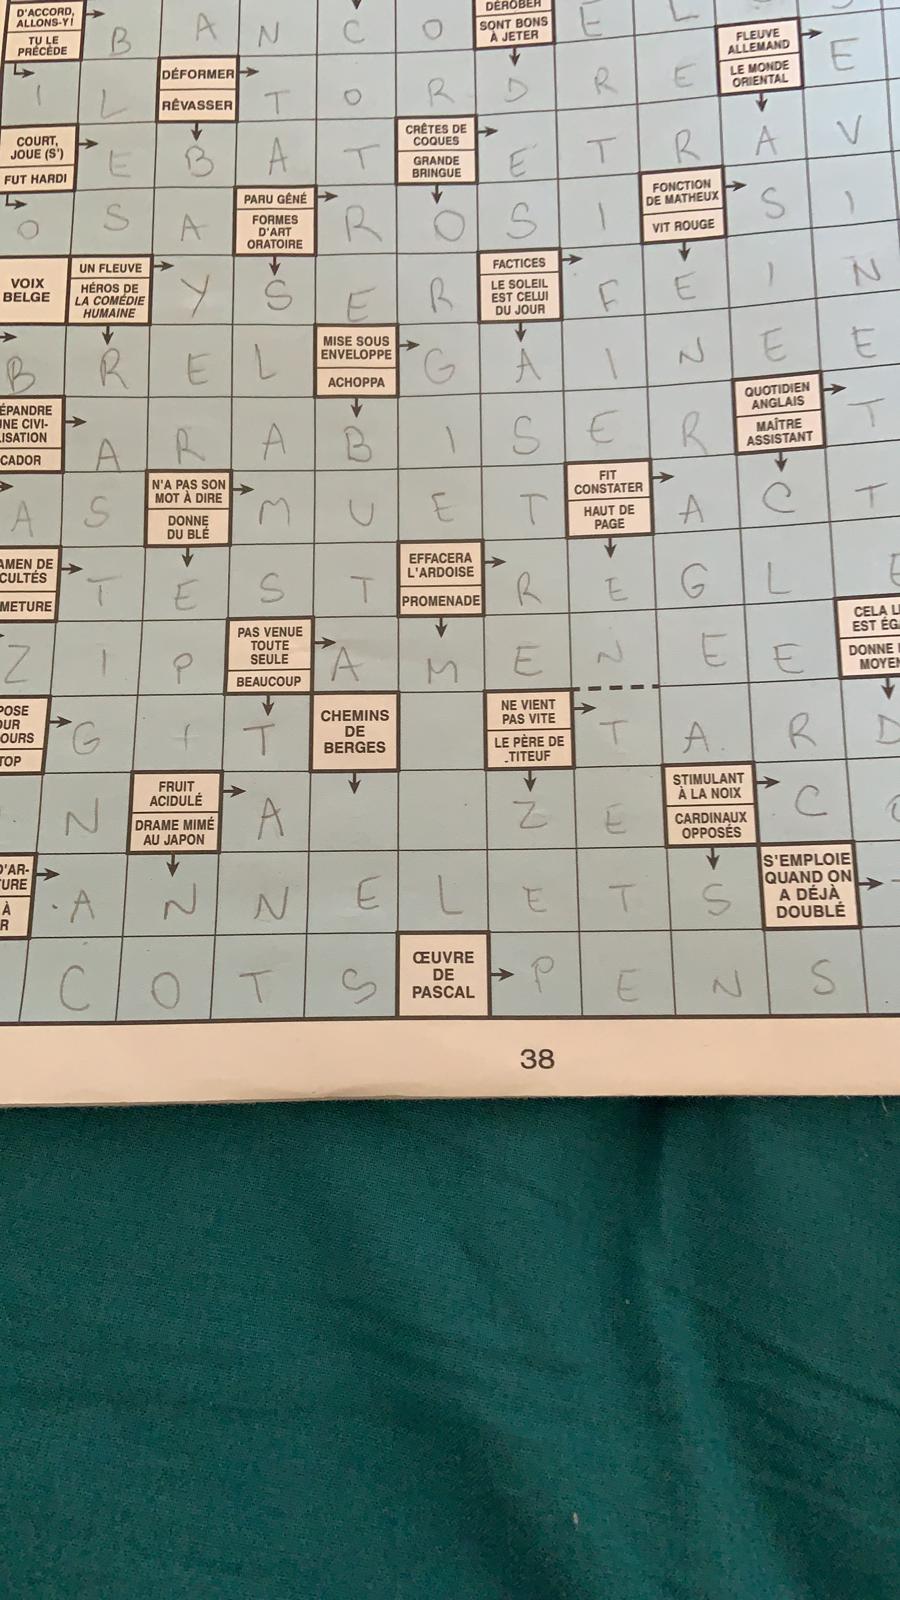 D'ACCORD, ALLONS-Y!
TU LE PRÉCÈDE
B A N C O
DÉROBER
SONT BONS À JETER
E L
I L
DÉFORMER
RÊVASSER
T O R D R E
FLEUVE ALLEMAND
LE MONDE ORIENTAL
E
COURT, JOUE (S')
FUT HARDI
E B A T
CRÊTES DE COQUES
GRANDE BRINGUE
E T R A V
O S A
PARU GÊNÉ
FORMES D'ART ORATOIRE
R O S I
FONCTION DE MATHEUX
VIT ROUGE
S I
VOIX BELGE
UN FLEUVE
HÉROS DE LA COMÉDIE HUMAINE
Y S E R
FACTICES
LE SOLEIL EST CELUI DU JOUR
F E I N
B R E L
MISE SOUS ENVELOPPE
ACHOPPA
G A I N E E
ÉPANDRE
UNE CIVI-
LISATION
CADOR
A R A B I S E R
QUOTIDIEN ANGLAIS
MAÎTRE ASSISTANT
T
A S
N'A PAS SON MOT À DIRE
DONNE DU BLÉ
M U E T
FIT CONSTATER
HAUT DE PAGE
A C T
AMEN DE
CULTÉS
METURE
T E S T
EFFACERA L'ARDOISE
PROMENADE
R E G L E
Z I P
PAS VENUE TOUTE SEULE
BEAUCOUP
A M E N E E
CELA L
EST ÉG
DONNE
MOYEN
POSE
OUR
OURS
TOP
G I T
CHEMINS DE BERGES
NE VIENT PAS VITE
LE PÈRE DE TITEUF
T A R D
N
FRUIT ACIDULÉ
DRAME MIMÉ AU JAPON
A
Z E
STIMULANT À LA NOIX
CARDINAUX OPPOSÉS
C
D'AR-
URE
À
R
A N N E L E T S
S'EMPLOIE QUAND ON A DÉJÀ DOUBLÉ
C O T S
ŒUVRE DE PASCAL
P E N S
38